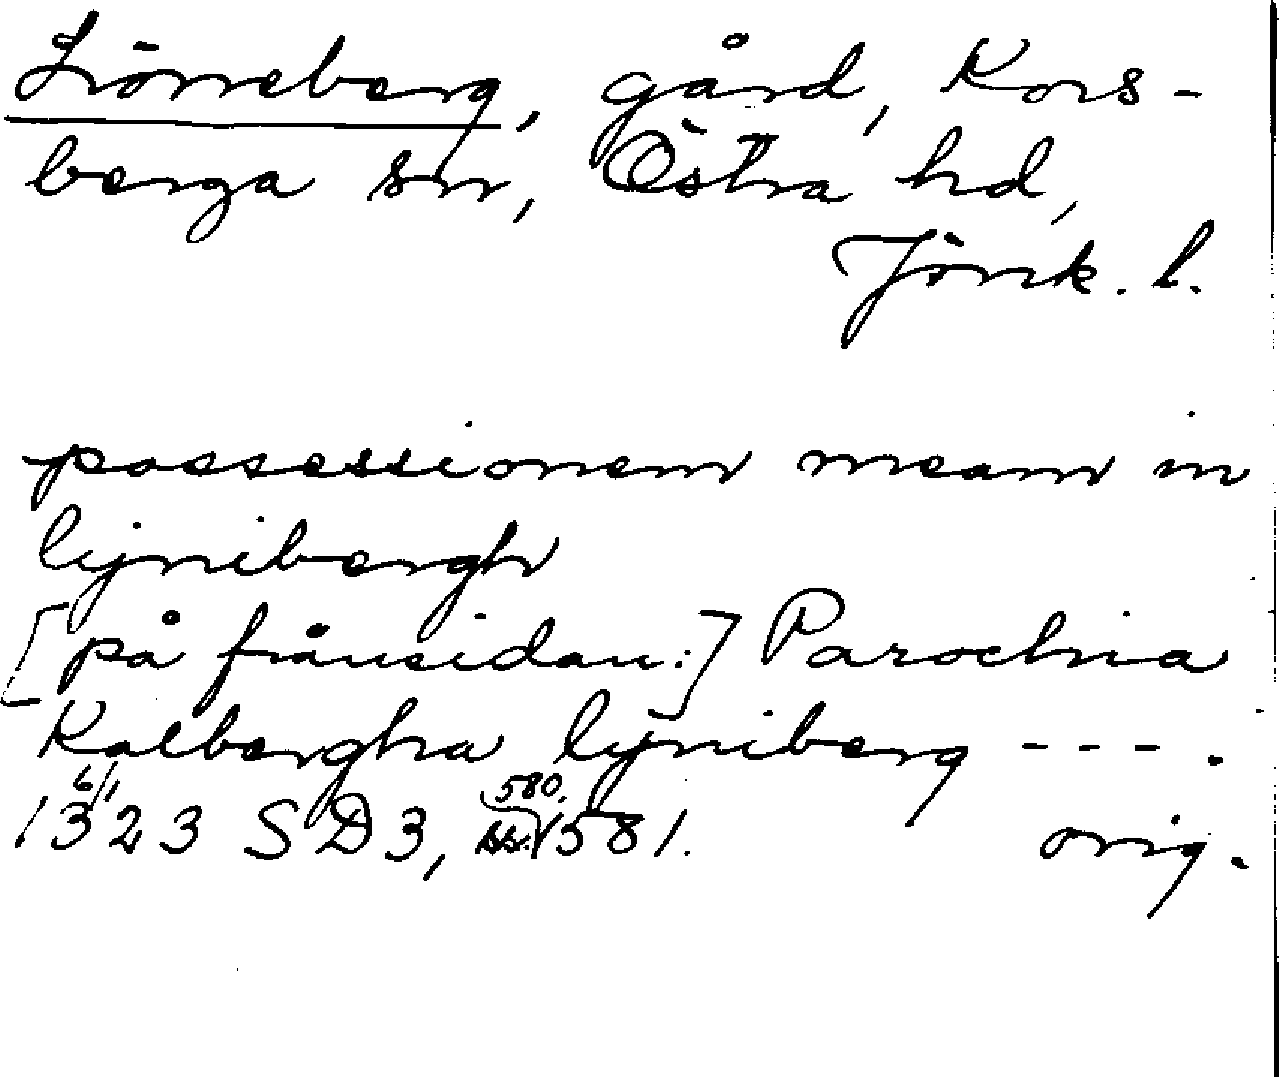 Lönneberg, gård, Kors-
berga sn, Östra hd,
Jönk. l.
possessionem meam in
lijnibergh
[på frånsidan:] Parochia
Kalbergha lijniberg ---.
6/1 580.
1323 SD3, ss. 581. orig.